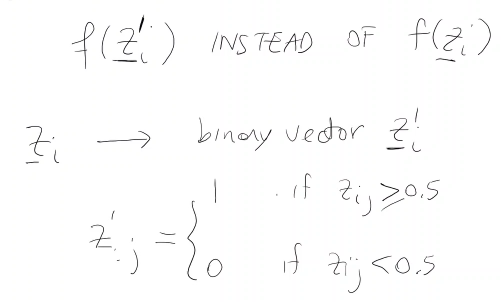 f(z̲'ᵢ) INSTEAD OF f(z̲ᵢ)
z̲ᵢ → binary vector z̲'ᵢ
z'ᵢⱼ = { 1 if zᵢⱼ ≥ 0.5
0 if zᵢⱼ < 0.5